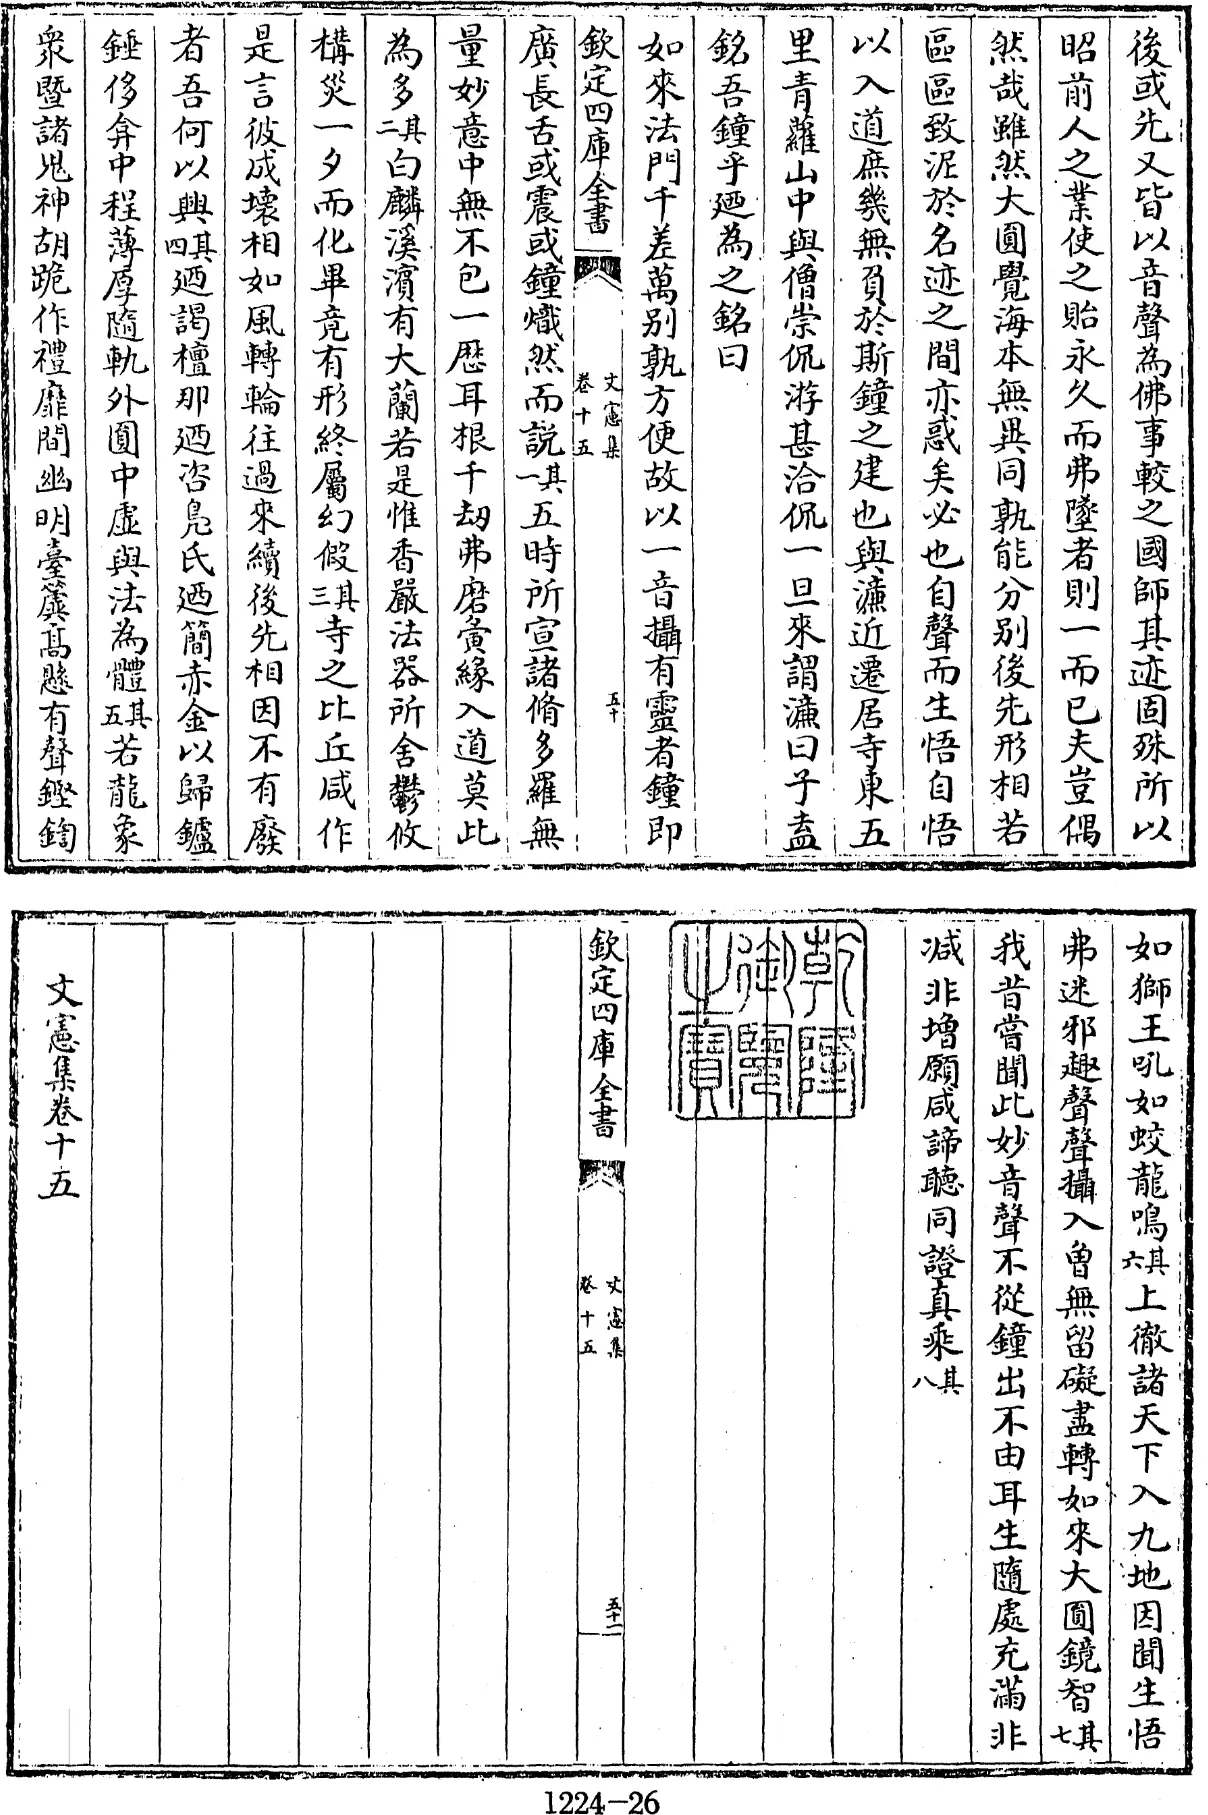 後或先又皆以音聲為佛事較之國師其迹固殊所以
昭前人之業使之貽永久而弗墜者則一而已夫豈偶
然哉雖然大圓覺海本無異同孰能分别後先形相若
區區致泥於名迹之間亦惑矣必也自聲而生悟自悟
以入道庶幾無負於斯鐘之建也與濂近遷居寺東五
里青蘿山中與僧崇侃游甚洽侃一旦來謂濂曰子盍
銘吾鐘乎廼為之銘曰
如來法門千差萬别孰方便故以一音攝有靈者鐘即
欽定四庫全書
文憲集
卷十五
五十
廣長舌或震或鐘熾然而説其一五時所宣諸脩多羅無
量妙意中無不包一歴耳根千刼弗磨夤緣入道莫此
為多其二白麟溪濱有大蘭若是惟香嚴法器所舍鬱攸
構災一夕而化畢竟有形終屬幻假其三寺之比丘咸作
是言彼成壊相如風轉輪往過來續後先相因不有廢
者吾何以興其四廼謁檀那廼咨鳬氏廼簡赤金以歸鑪
錘侈弇中程薄厚隨軌外圓中虛與法為體其五若龍象
衆暨諸鬼神胡跪作禮靡間幽明臺簴高懸有聲鏗鍧
如獅王吼如蛟龍鳴其六上徹諸天下入九地因聞生悟
弗迷邪趣聲聲攝入曾無留礙盡轉如來大圓鏡智其七
我昔嘗聞此妙音聲不從鐘出不由耳生隨處充滿非
减非增願咸諦聽同證真乘其八
乾隆御覽之寶
欽定四庫全書
文憲集
卷十五
五十一
文憲集卷十五
1224-26